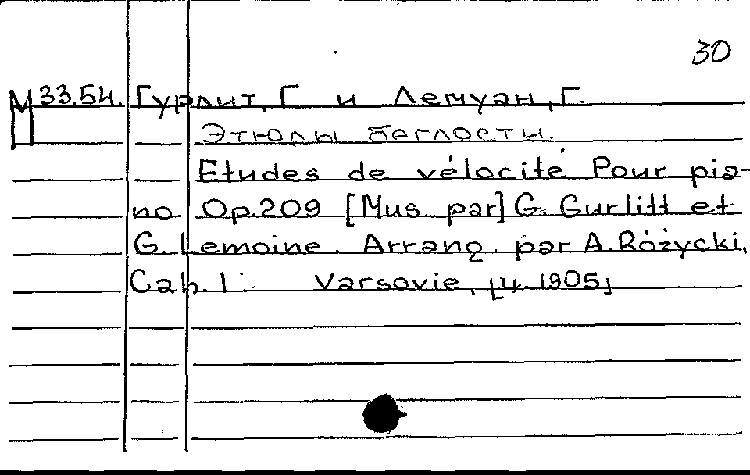 30
М 33.54. Гурлит, Г. и Лемуан, Г.
П Этюды беглости.
Etudes de vélocité. Pour pia-
no Op.209 [Mus par] G. Gurlitt et
G. Lemoine. Arrang. par A. Różycki.
Cah. 1 Varsovie, [ц. 1905]